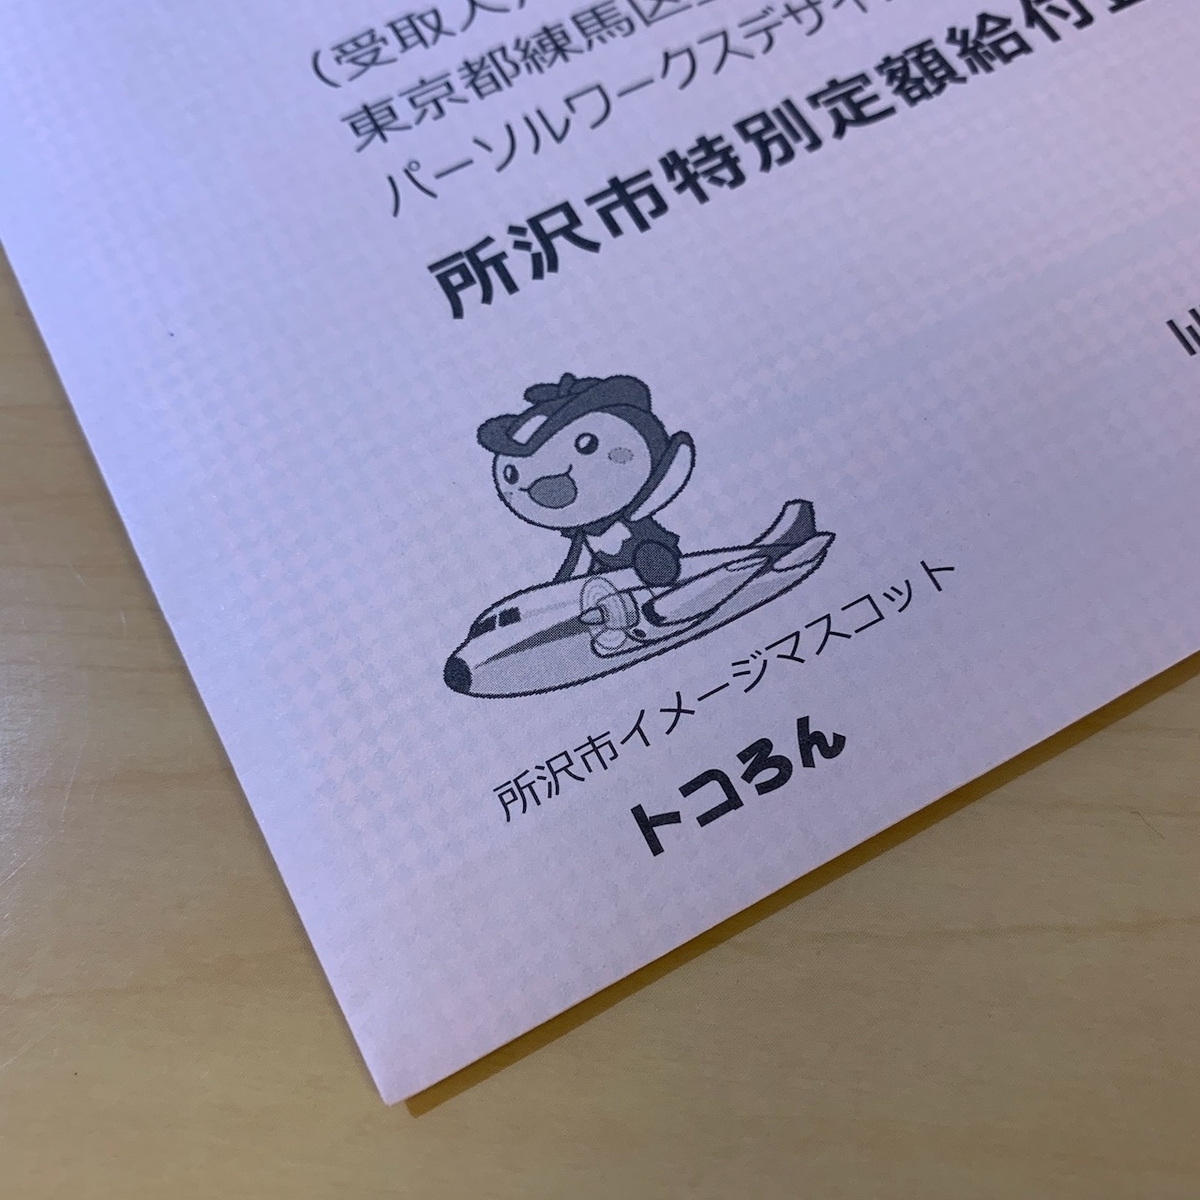 (受取人
東京都練馬区
パーソルワークスデザイ
所沢市特別定額給付金
所沢市イメージマスコット
トコろん